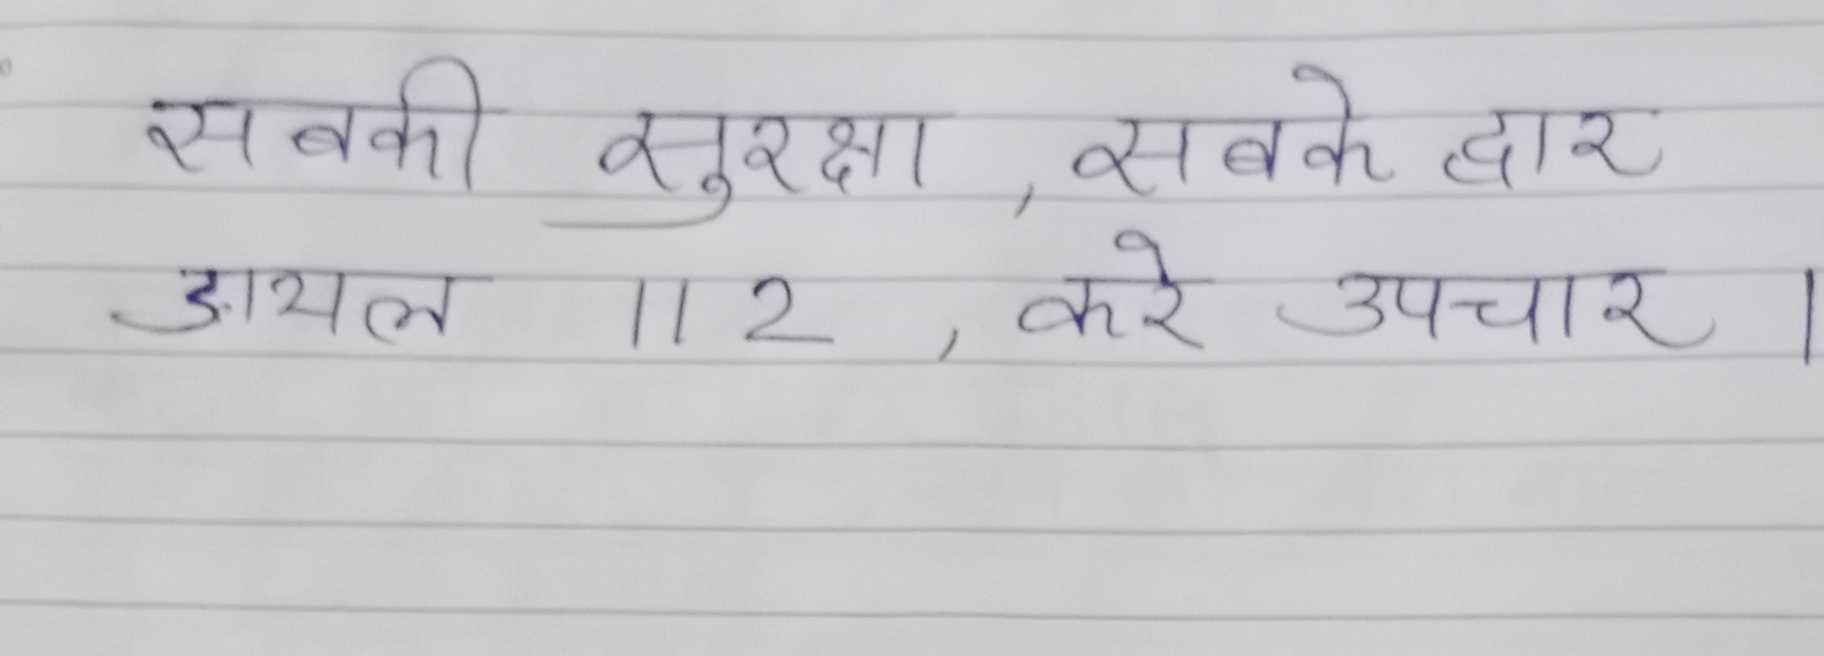 सबकी सुरक्षा , सबके द्वार
डायल 112 , करे उपचार ।